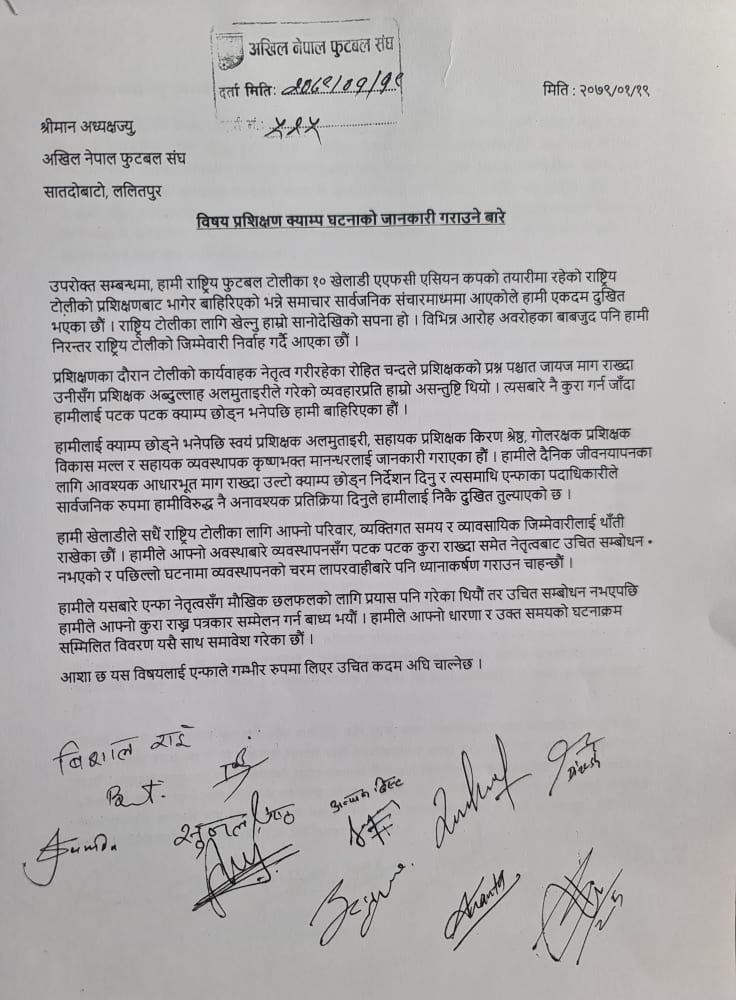 अखिल नेपाल फुटबल संघ
दर्ता मिति: २०७९/०१/१९
मिति : २०७९/०१/१९
नं.:
श्रीमान अध्यक्षज्यु,
अखिल नेपाल फुटबल संघ
सातदोबाटो, ललितपुर
विषय प्रशिक्षण क्याम्प घटनाको जानकारी गराउने बारे
उपरोक्त सम्बन्धमा, हामी राष्ट्रिय फुटबल टोलीका १० खेलाडी एएफसी एसियन कपको तयारीमा रहेको राष्ट्रिय
टोलीको प्रशिक्षणबाट भागेर बाहिरिएको भन्ने समाचार सार्वजनिक संचारमाध्यममा आएकोले हामी एकदम दुखित
भएका छौं । राष्ट्रिय टोलीका लागि खेल्नु हाम्रो सानोदेखिको सपना हो । विभिन्न आरोह अवरोहका बाबजुद पनि हामी
निरन्तर राष्ट्रिय टोलीको जिम्मेवारी निर्वाह गर्दै आएका छौं ।
प्रशिक्षणका दौरान टोलीको कार्यवाहक नेतृत्व गरीरहेका रोहित चन्दले प्रशिक्षकको प्रश्न पश्चात जायज माग राख्दा
उनीसँग प्रशिक्षक अब्दुल्लाह अलमुताइरीले गरेको व्यवहारप्रति हाम्रो असन्तुष्टि थियो । त्यसबारे नै कुरा गर्न जाँदा
हामीलाई पटक पटक क्याम्प छोड्न भनेपछि हामी बाहिरिएका हौं ।
हामीलाई क्याम्प छोड्ने भनेपछि स्वयं प्रशिक्षक अलमुताइरी, सहायक प्रशिक्षक किरण श्रेष्ठ, गोलरक्षक प्रशिक्षक
विकास मल्ल र सहायक व्यवस्थापक कृष्णभक्त मानन्धरलाई जानकारी गराएका हौं । हामीले दैनिक जीवनयापनका
लागि आवश्यक आधारभूत माग राख्दा उल्टो क्याम्प छोड्न निर्देशन दिनु र त्यसमाथि एन्फाका पदाधिकारीले
सार्वजनिक रुपमा हामीविरुद्ध नै अनावश्यक प्रतिक्रिया दिनुले हामीलाई निकै दुखित तुल्याएको छ ।
हामी खेलाडीले सधैं राष्ट्रिय टोलीका लागि आफ्नो परिवार, व्यक्तिगत समय र व्यावसायिक जिम्मेवारीलाई थाँती
राखेका छौं । हामीले आफ्नो अवस्थाबारे व्यवस्थापनसँग पटक पटक कुरा राख्दा समेत नेतृत्वबाट उचित सम्बोधन
नभएको र पछिल्लो घटनामा व्यवस्थापनको चरम लापरवाहीबारे पनि ध्यानाकर्षण गराउन चाहन्छौं ।
हामीले यसबारे एन्फा नेतृत्वसँग मौखिक छलफलको लागि प्रयास पनि गरेका थियौं तर उचित सम्बोधन नभएपछि
हामीले आफ्नो कुरा राख्न पत्रकार सम्मेलन गर्न बाध्य भयौं । हामीले आफ्नो धारणा र उक्त समयको घटनाक्रम
सम्मिलित विवरण यसै साथ समावेश गरेका छौं ।
आशा छ यस विषयलाई एन्फाले गम्भीर रुपमा लिएर उचित कदम अघि चाल्नेछ ।
बिशाल राई
Dinesh
अन्जन बिष्ट
Ananta